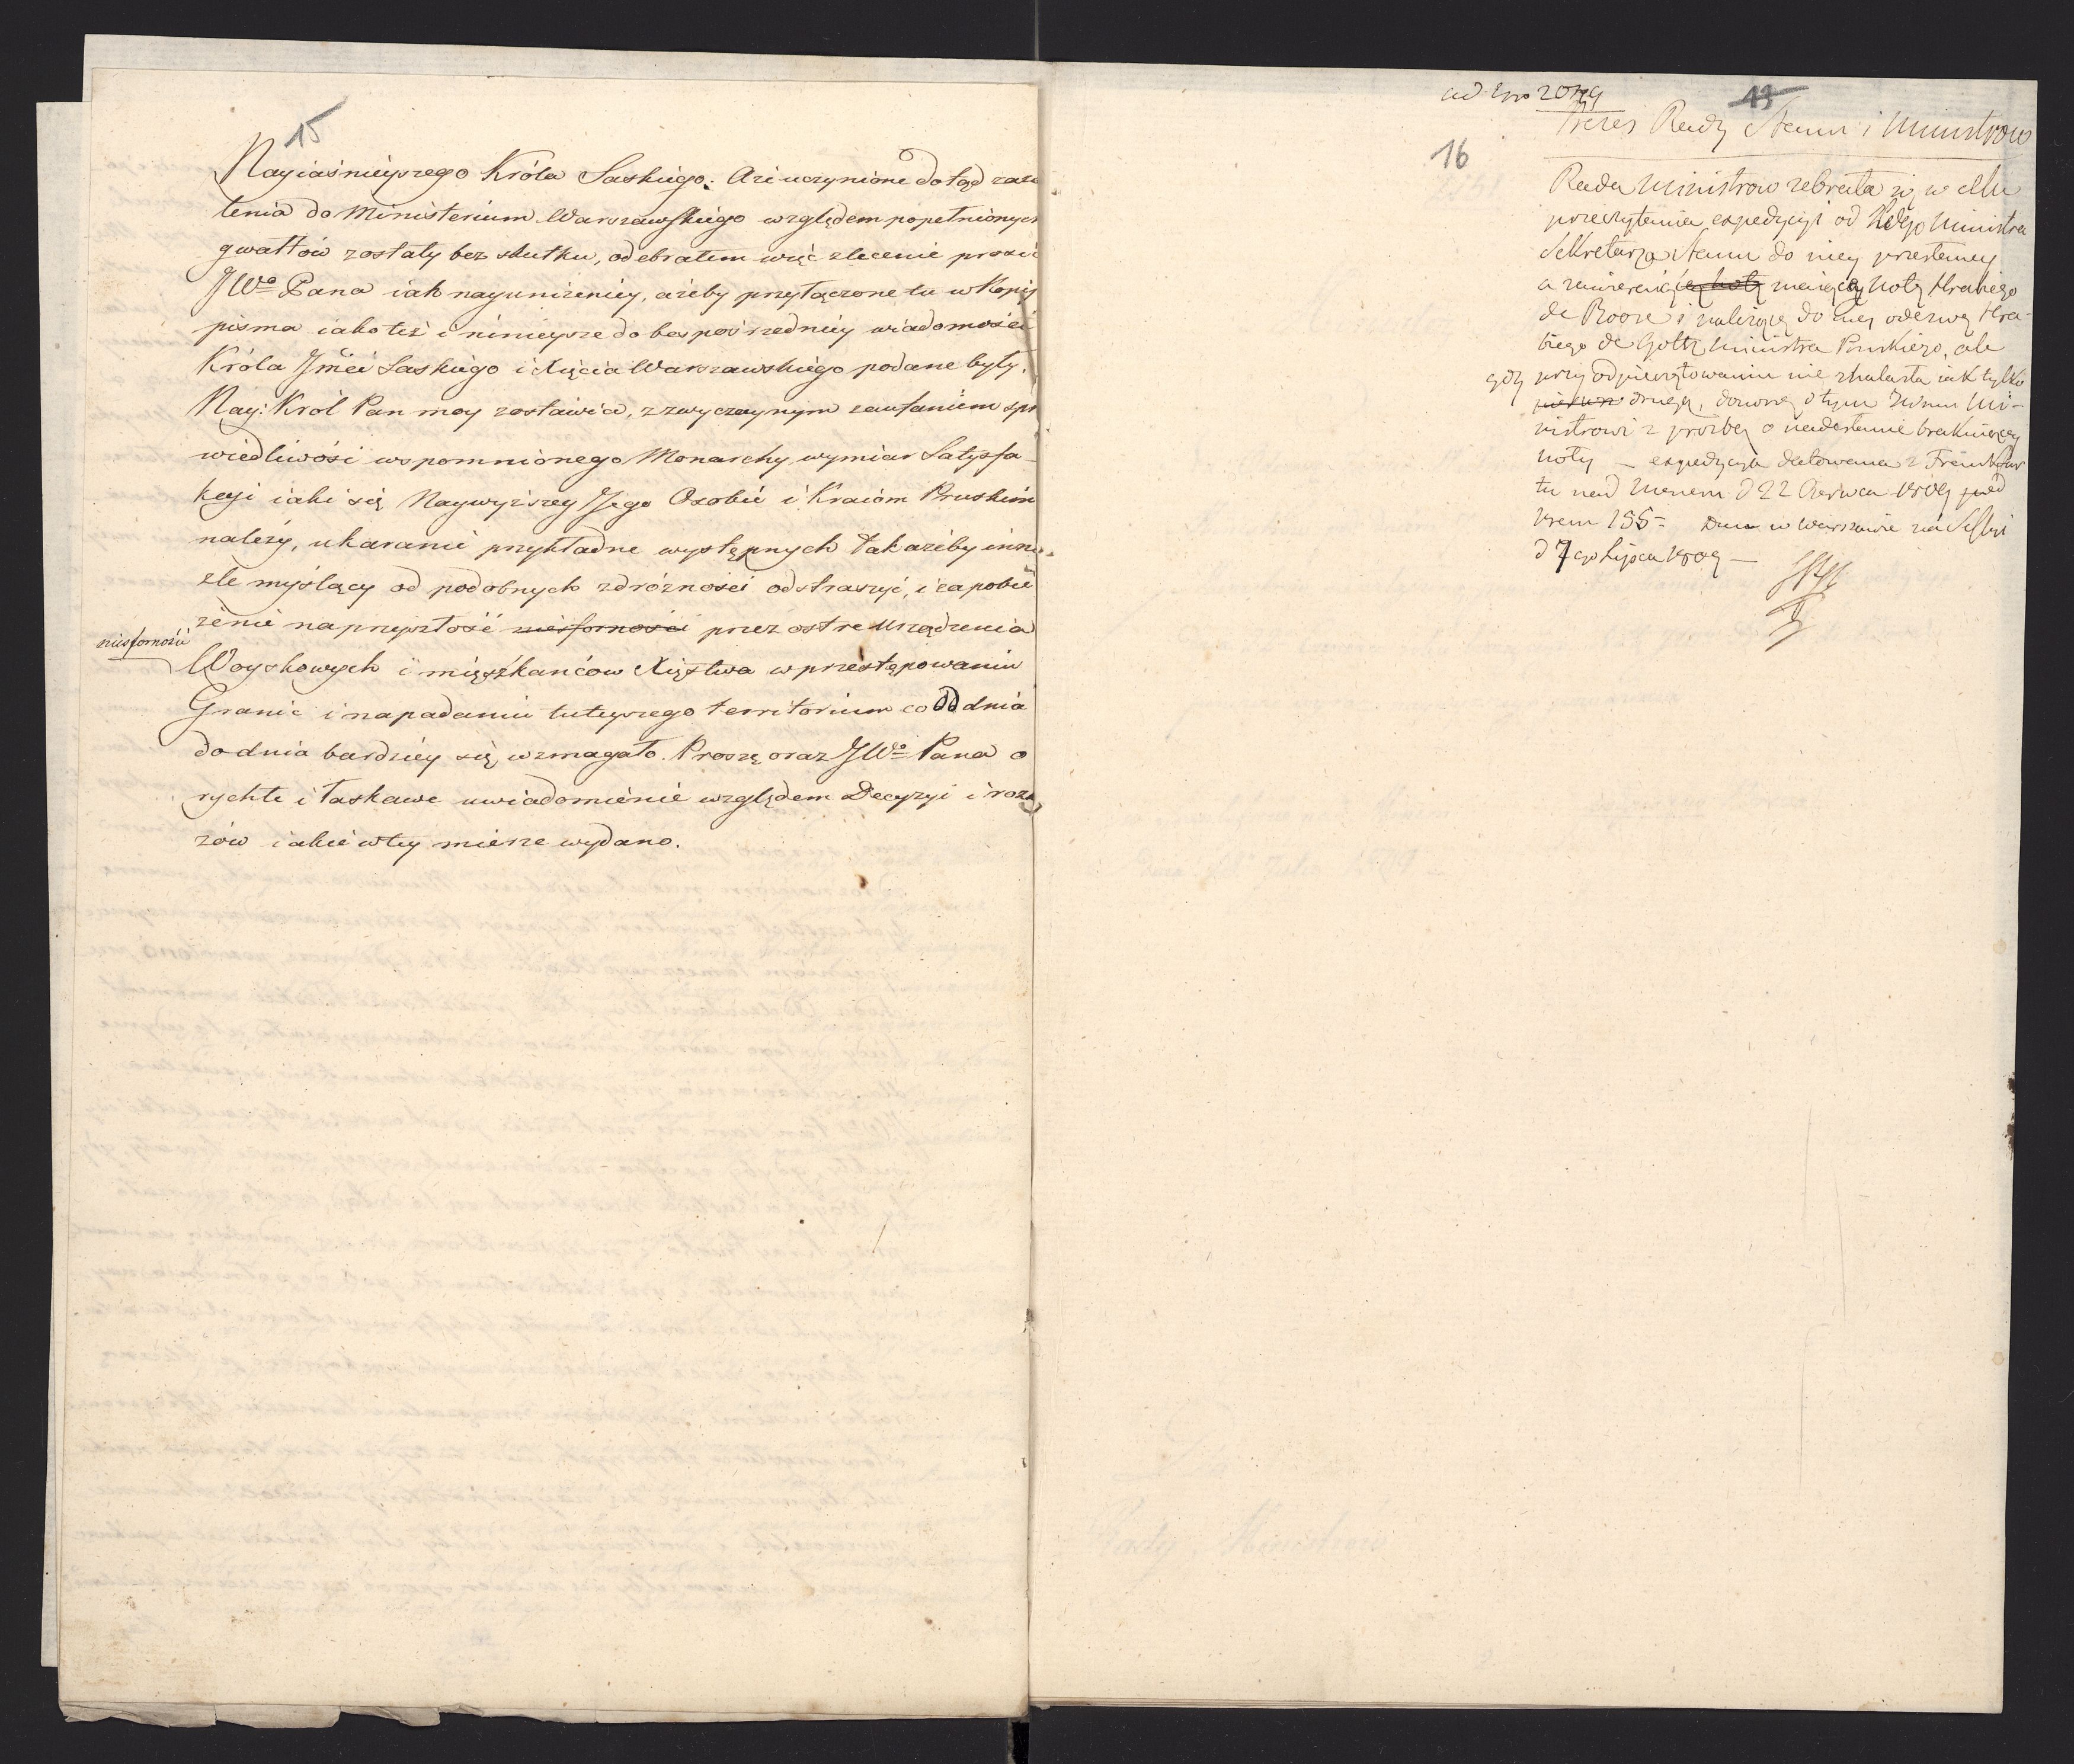 15
Nayiaśnieyszego Króla Saskiego. Aże uczynione dotąd zaża
lenia do Ministerium Warszawskiego względem popełnionych
gwałtów zostały bez skutku, odebrałem więc zlecenie prosić
JWo Pana iak nayuniżeniey, ażeby przyłączone tu w Kopij
pisma iako też i ninieysze do bezpośredniey wiadomości
Króla Jmći Saskiego i Xięcia Warszawskiego podane były.
Nay: Król Pan moy zostawia, z zwyczaynym zaufaniem spra
wiedliwości wspomnionego Monarchy, wymiar Satysfa-
kcyi iaki się Naywyższey Jego Osobie i Kraióm Pruskim
należy, ukaranie przykładne występnych tak ażeby inni
źle myślący od podobnych zdróżności odstraszyć, i zapobie
żenie na przyszłość niesforności przez ostre urządzenia
niesforności
Woyskowych i mięszkańców Xięstwa w przestępowaniu
Granic i napadaniu tuteyszego territorium co od dnia
do dnia bardziey się wzmagało. Proszę oraz JWo Pana o
rychłe i łaskawe uwiadomienie względem Decyzyi i rozka
zów iakie w tey mierze wydano.
ad Nro 2079
13
Prezes Rady Stanu i Ministrow
16
Rada Ministrow zebrała się w celu
przeczytania expedycyi od Ministra
Sekretarza Stanu do niey przesłaney
a zawierać maiącey Notę Hrabiego
de Roose i należącą do niey odezwę Hra-
biego de Goltz Ministra Pruskiego, ale
gdy przy odpieczętowaniu nie znalazła iak tylko
drugą, donoszę o tym Mi-
nistrowi z prozbą o nadesłanie brakuiącey
noty – expedycya datowana z Frankfur
tu nad Menem d 22 Czerwca 1809 pod
Nrem 155 – Dan w Warszawie na Sessyi
d 7go Lipca 1809 –